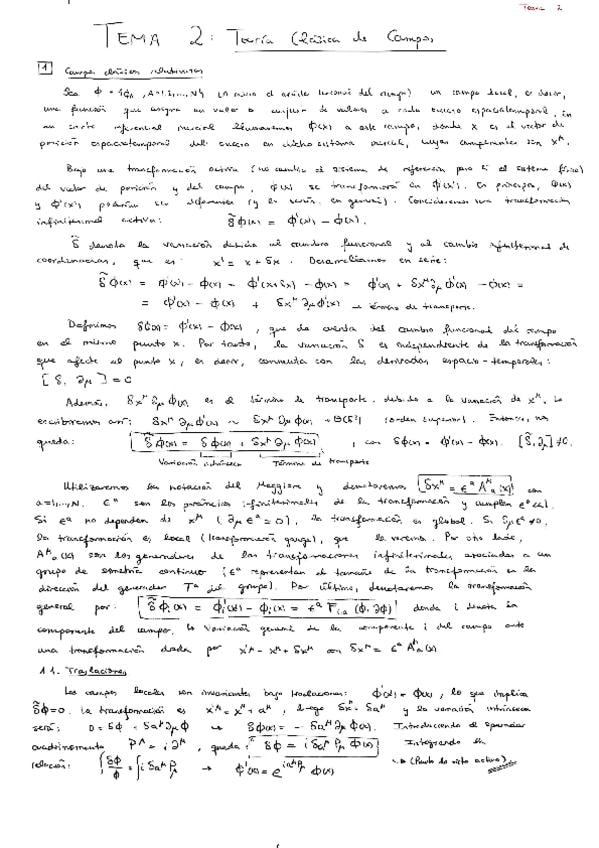 Tema 2
TEMA 2: Teoría Clásica de Campos
1 Campos clásicos relativistas
Sea Φ = {ϕ_A, A=1,2,...,N} un campo local, es decir,
una función que asigna un valor o conjunto de valores a cada suceso espaciotemporal. En
un cierto referencial inercial llamaremos Φ(x) a este campo, donde x es el vector de
posición espaciotemporal del suceso en dicho sistema inercial, cuyas componentes son x^μ.
Bajo una transformación activa (no cambia el sistema de referencia pero sí el sistema físico)
del vector de posición y del campo, ϕ(x) se transformará en ϕ'(x'). En principio, ϕ(x)
y ϕ'(x') podrían ser diferentes (y lo serán en general). Consideremos una transformación
infinitesimal activa: δ̃ϕ(x) = ϕ'(x') - ϕ(x).
δ̃ denota la variación debida al cambio funcional y al cambio infinitesimal de
coordenadas, que es: x' = x + δx. Desarrollamos en serie:
δ̃ϕ(x) = ϕ'(x') - ϕ(x) = ϕ'(x+δx) - ϕ(x) = ϕ'(x) + δx^μ ∂_μ ϕ'(x) - ϕ(x) =
= ϕ'(x) - ϕ(x) + δx^μ ∂_μ ϕ'(x) → término de transporte.
Definimos δϕ(x) = ϕ'(x) - ϕ(x), que da cuenta del cambio funcional del campo
en el mismo punto x. Por tanto, la variación δ es independiente de la transformación
que afecte al punto x, es decir, conmuta con las derivadas espacio-temporales:
[δ, ∂_μ] = 0
Además, δx^μ ∂_μ ϕ(x) es el término de transporte debido a la variación de x^μ. Lo
escribiremos así: δx^μ ∂_μ ϕ'(x) ~ δx^μ ∂_μ ϕ(x) + O(δ²) (orden superior). Entonces, nos
queda: δ̃ϕ(x) = δϕ(x) + δx^μ ∂_μ ϕ(x), con δϕ(x) = ϕ'(x) - ϕ(x). [δ̃, ∂_μ] ≠ 0.
Variación intrínseca Término de transporte
Utilizaremos la notación del Maggiore y denotaremos δx^μ = ε^a A^μ_a(x) con
a=1,...,N. ε^a son los parámetros infinitesimales de la transformación y cumplen ε^a<<1.
Si ε^a no dependen de x^μ (∂_μ ε^a = 0), la transformación es global. Si ∂_μ ε^a ≠ 0,
la transformación es local (transformación gauge), que la veremos. Por otro lado,
A^μ_a(x) son los generadores de las transformaciones infinitesimales asociadas a un
grupo de simetría continuo (ε^a representan el tamaño de la transformación en la
dirección del generador T^a del grupo). Por último, denotaremos la transformación
general por: δ̃ϕ_i(x) = ϕ'_i(x') - ϕ_i(x) = ε^a F_{i,a}(ϕ, ∂ϕ) donde i denota la
componente del campo. Variación general de la componente i del campo ante
una transformación dada por x'^μ = x^μ + δx^μ con δx^μ = ε^a A^μ_a(x)
1.1. Traslaciones
Los campos locales son invariantes bajo traslaciones: ϕ'(x') = ϕ(x), lo que implica
δ̃ϕ=0. La transformación es x'^μ = x^μ + a^μ, luego δx^μ = δa^μ y la variación intrínseca
será: 0 = δϕ + δa^μ ∂_μ ϕ → δϕ(x) = - δa^μ ∂_μ ϕ(x). Introduciendo el operador
cuadrimomento P^μ = i∂^μ, queda: δϕ = i δa^μ P_μ ϕ(x) Integrando la
relación: ∫ δϕ/ϕ = ∫ i δa^μ P_μ → ϕ'(x) = e^{i a^μ P_μ} ϕ(x) (Punto de vista activo)